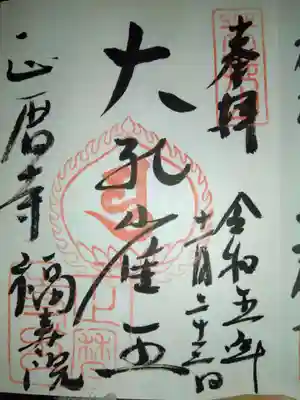 奉拝
令和五年
十一月二十三日
大孔雀王
正暦寺 福寿院